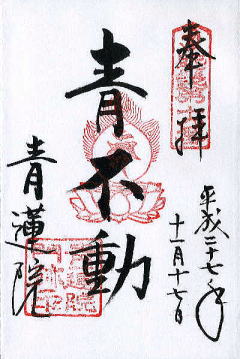 奉拝
平成二十七年
十一月十七日
青不動
青蓮院